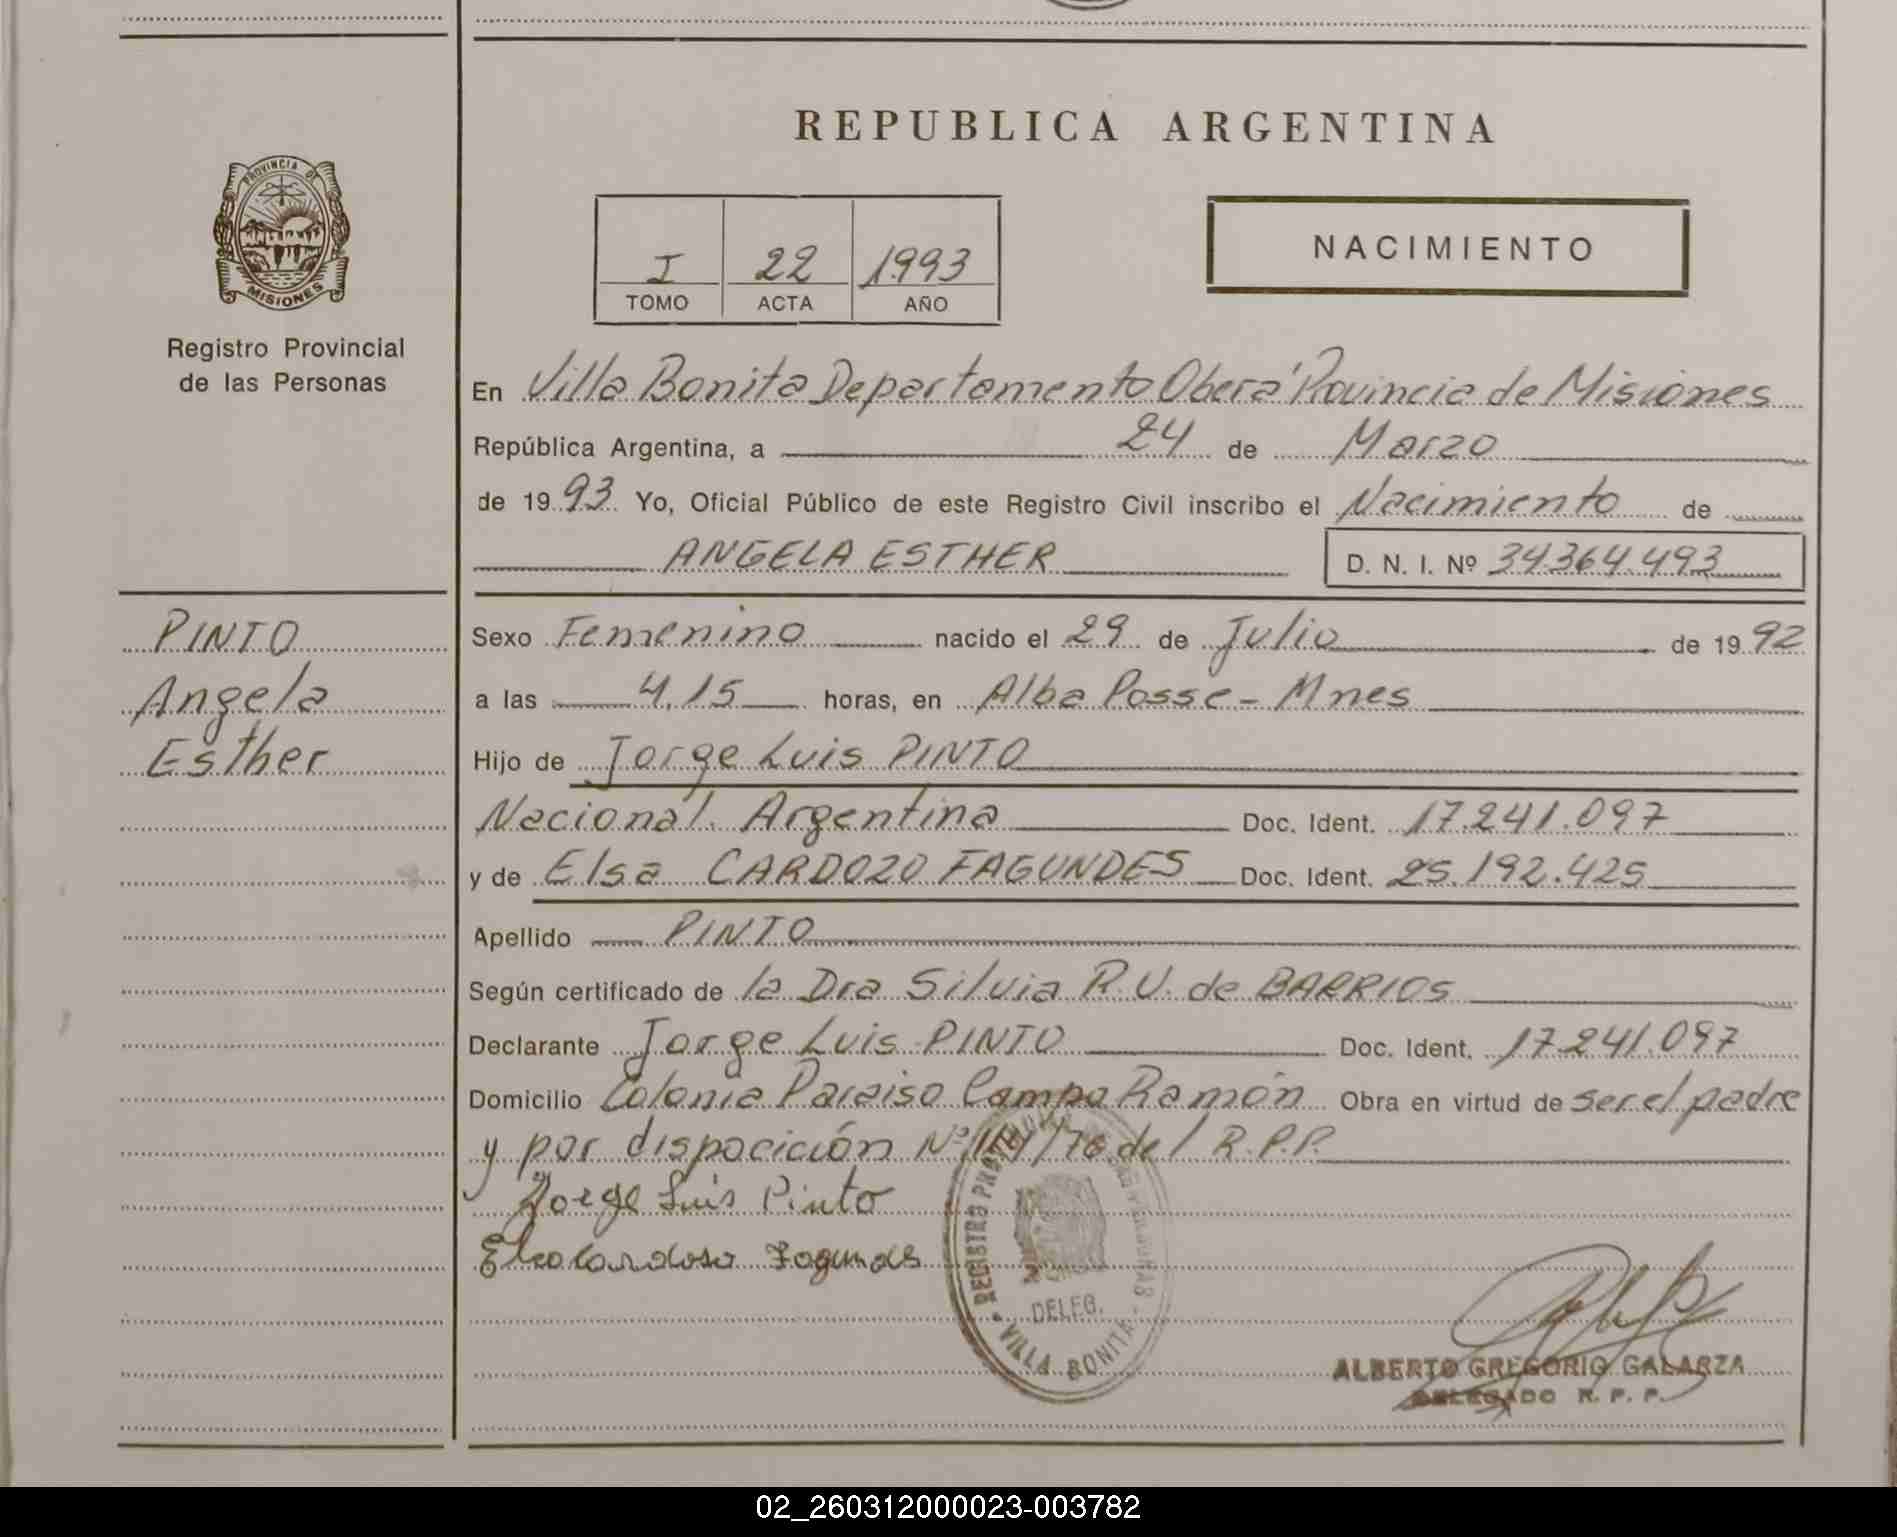 REPUBLICA ARGENTINA
PROVINCIA DE
MISIONES
Registro Provincial
de las Personas
I 22 1993
TOMO ACTA AÑO
NACIMIENTO
En Villa Bonita Departamento Oberá Provincia de Misiones
República Argentina, a 24 de Marzo
de 1993 Yo, Oficial Público de este Registro Civil inscribo el Nacimiento de
ANGELA ESTHER D. N. I. Nº 34.364.493
PINTO
Angela
Esther
Sexo Femenino nacido el 29 de Julio de 1992
a las 4,15 horas, en Alba Posse - Mnes
Hijo de Jorge Luis PINTO
Nacional. Argentina Doc. Ident. 17.241.097
y de Elsa CARDOZO FAGUNDES Doc. Ident. 25.192.425
Apellido PINTO
Según certificado de la Dra Silvia R.V. de BARRIOS
Declarante Jorge Luis PINTO Doc. Ident. 17.241.097
Domicilio Colonia Paraiso Campo Ramón Obra en virtud de ser el padre
y por disposición Nº /76 del R.P.P.
Jorge Luis Pinto
Elsa Cardoso Fagundes
REGISTRO
DELEG.
VILLA BONITA
ALBERTO GREGORIO GALARZA
DELEGADO R. P. P.
02_260312000023-003782